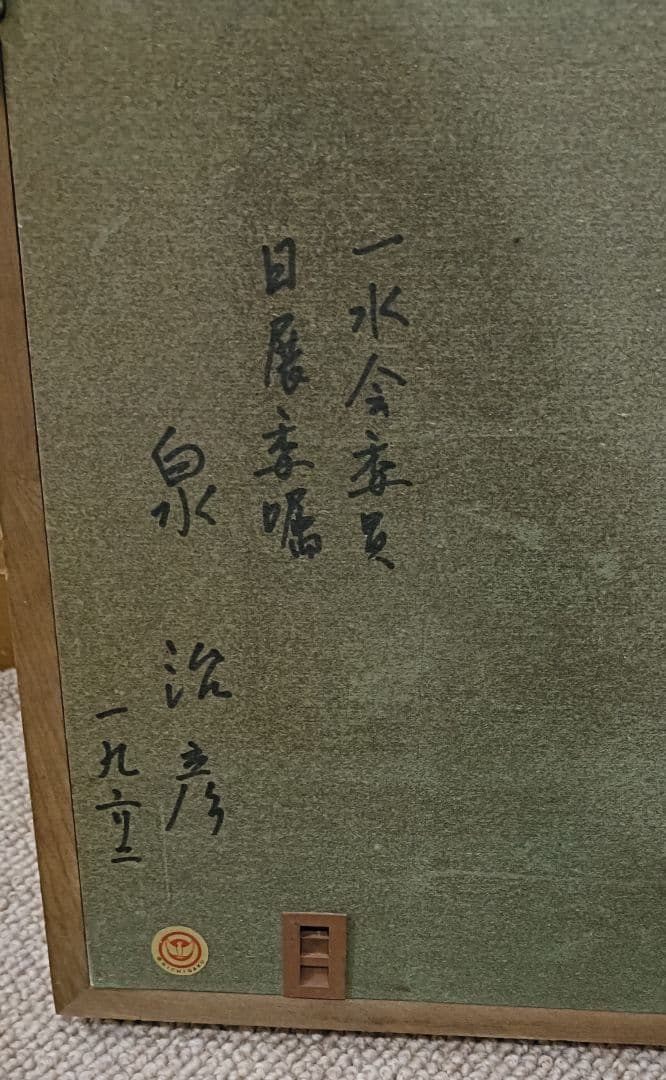 一水会委員
日展委嘱
泉 治彦
一九六二